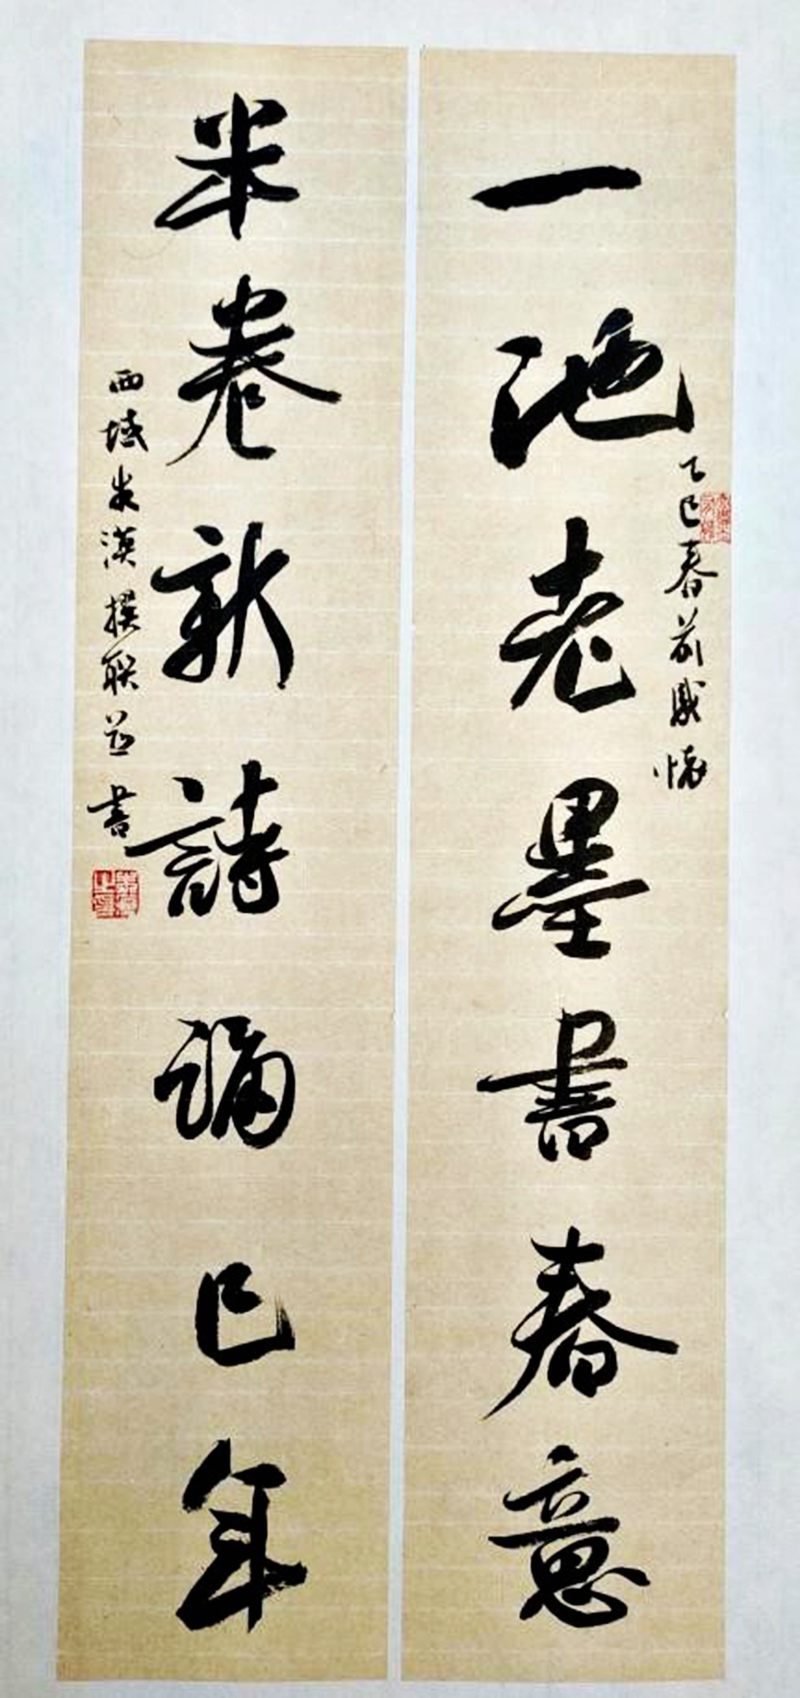 一池老墨書春意
乙巳春前感懷
半卷新詩誦巳年
西域朱漢撰联并書